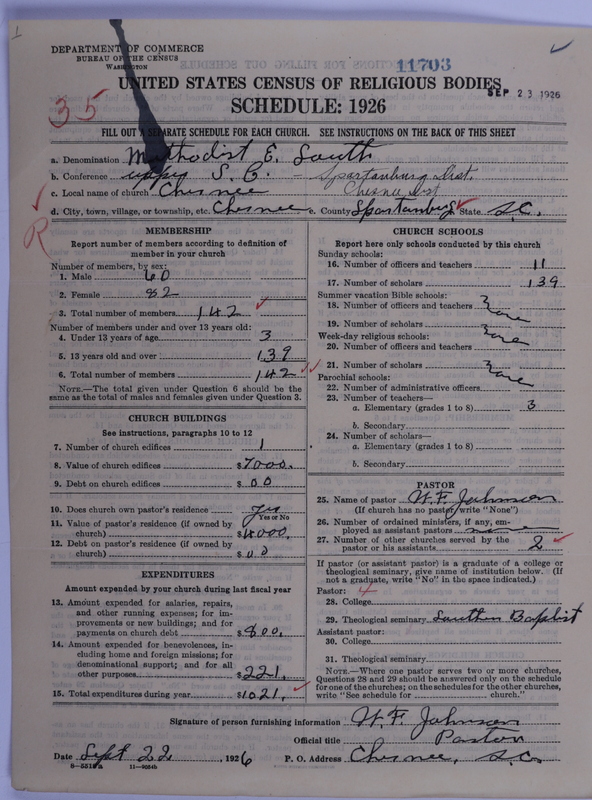 1
DEPARTMENT OF COMMERCE
BUREAU OF THE CENSUS
WASHINGTON
11703
UNITED STATES CENSUS OF RELIGIOUS BODIES
SEP 23 1926
35
SCHEDULE: 1926
FILL OUT A SEPARATE SCHEDULE FOR EACH CHURCH. SEE INSTRUCTIONS ON THE BACK OF THIS SHEET
a. Denomination Methodist E. South
b. Conference S. C. - Spartanburg Dist.
c. Local name of church Chesnee Chesnee
d. City, town, village, or township, etc. Chesnee e. County Spartanburg State S.C.
R
MEMBERSHIP
Report number of members according to definition of
member in your church
Number of members, by sex:
1. Male 60
2. Female 82
3. Total number of members 142
Number of members under and over 13 years old:
4. Under 13 years of age 3
5. 13 years old and over 139
6. Total number of members 142
NOTE.—The total given under Question 6 should be
the same as the total of males and females given under Question 3.
CHURCH BUILDINGS
See instructions, paragraphs 10 to 12
7. Number of church edifices 1
8. Value of church edifices $7000.
9. Debt on church edifices $00
10. Does church own pastor's residence yes
Yes or No
11. Value of pastor's residence (if owned by
church) $4000.
12. Debt on pastor's residence (if owned by
church) $00
EXPENDITURES
Amount expended by your church during last fiscal year
13. Amount expended for salaries, repairs,
and other running expenses; for im-
provements or new buildings; and for
payments on church debt $800.
14. Amount expended for benevolences, in-
cluding home and foreign missions; for
denominational support; and for all
other purposes $221.
15. Total expenditures during year $1021.
CHURCH SCHOOLS
Report here only schools conducted by this church
Sunday schools:
16. Number of officers and teachers 11
17. Number of scholars 139
Summer vacation Bible schools:
18. Number of officers and teachers None
19. Number of scholars
Week-day religious schools:
20. Number of officers and teachers None
21. Number of scholars None
Parochial schools:
22. Number of administrative officers
23. Number of teachers—
a. Elementary (grades 1 to 8) 3
b. Secondary
24. Number of scholars—
a. Elementary (grades 1 to 8)
b. Secondary
PASTOR
25. Name of pastor W. F. Johnson
(If church has no pastor, write "None")
26. Number of ordained ministers, if any, em-
ployed as assistant pastors none
27. Number of other churches served by the
pastor or his assistants 2
If pastor (or assistant pastor) is a graduate of a college or
theological seminary, give name of institution below. (If
not a graduate, write "No" in the space indicated.)
Pastor: 4
28. College
29. Theological seminary Southern Baptist
Assistant pastor:
30. College
31. Theological seminary
NOTE.—Where one pastor serves two or more churches,
Questions 28 and 29 should be answered only on the schedule
for one of the churches; on the schedules for the other churches,
write "See schedule for church."
Signature of person furnishing information W. F. Johnson
Official title Pastor
Date Sept 22, 1926 P. O. Address Chesnee, S.C.